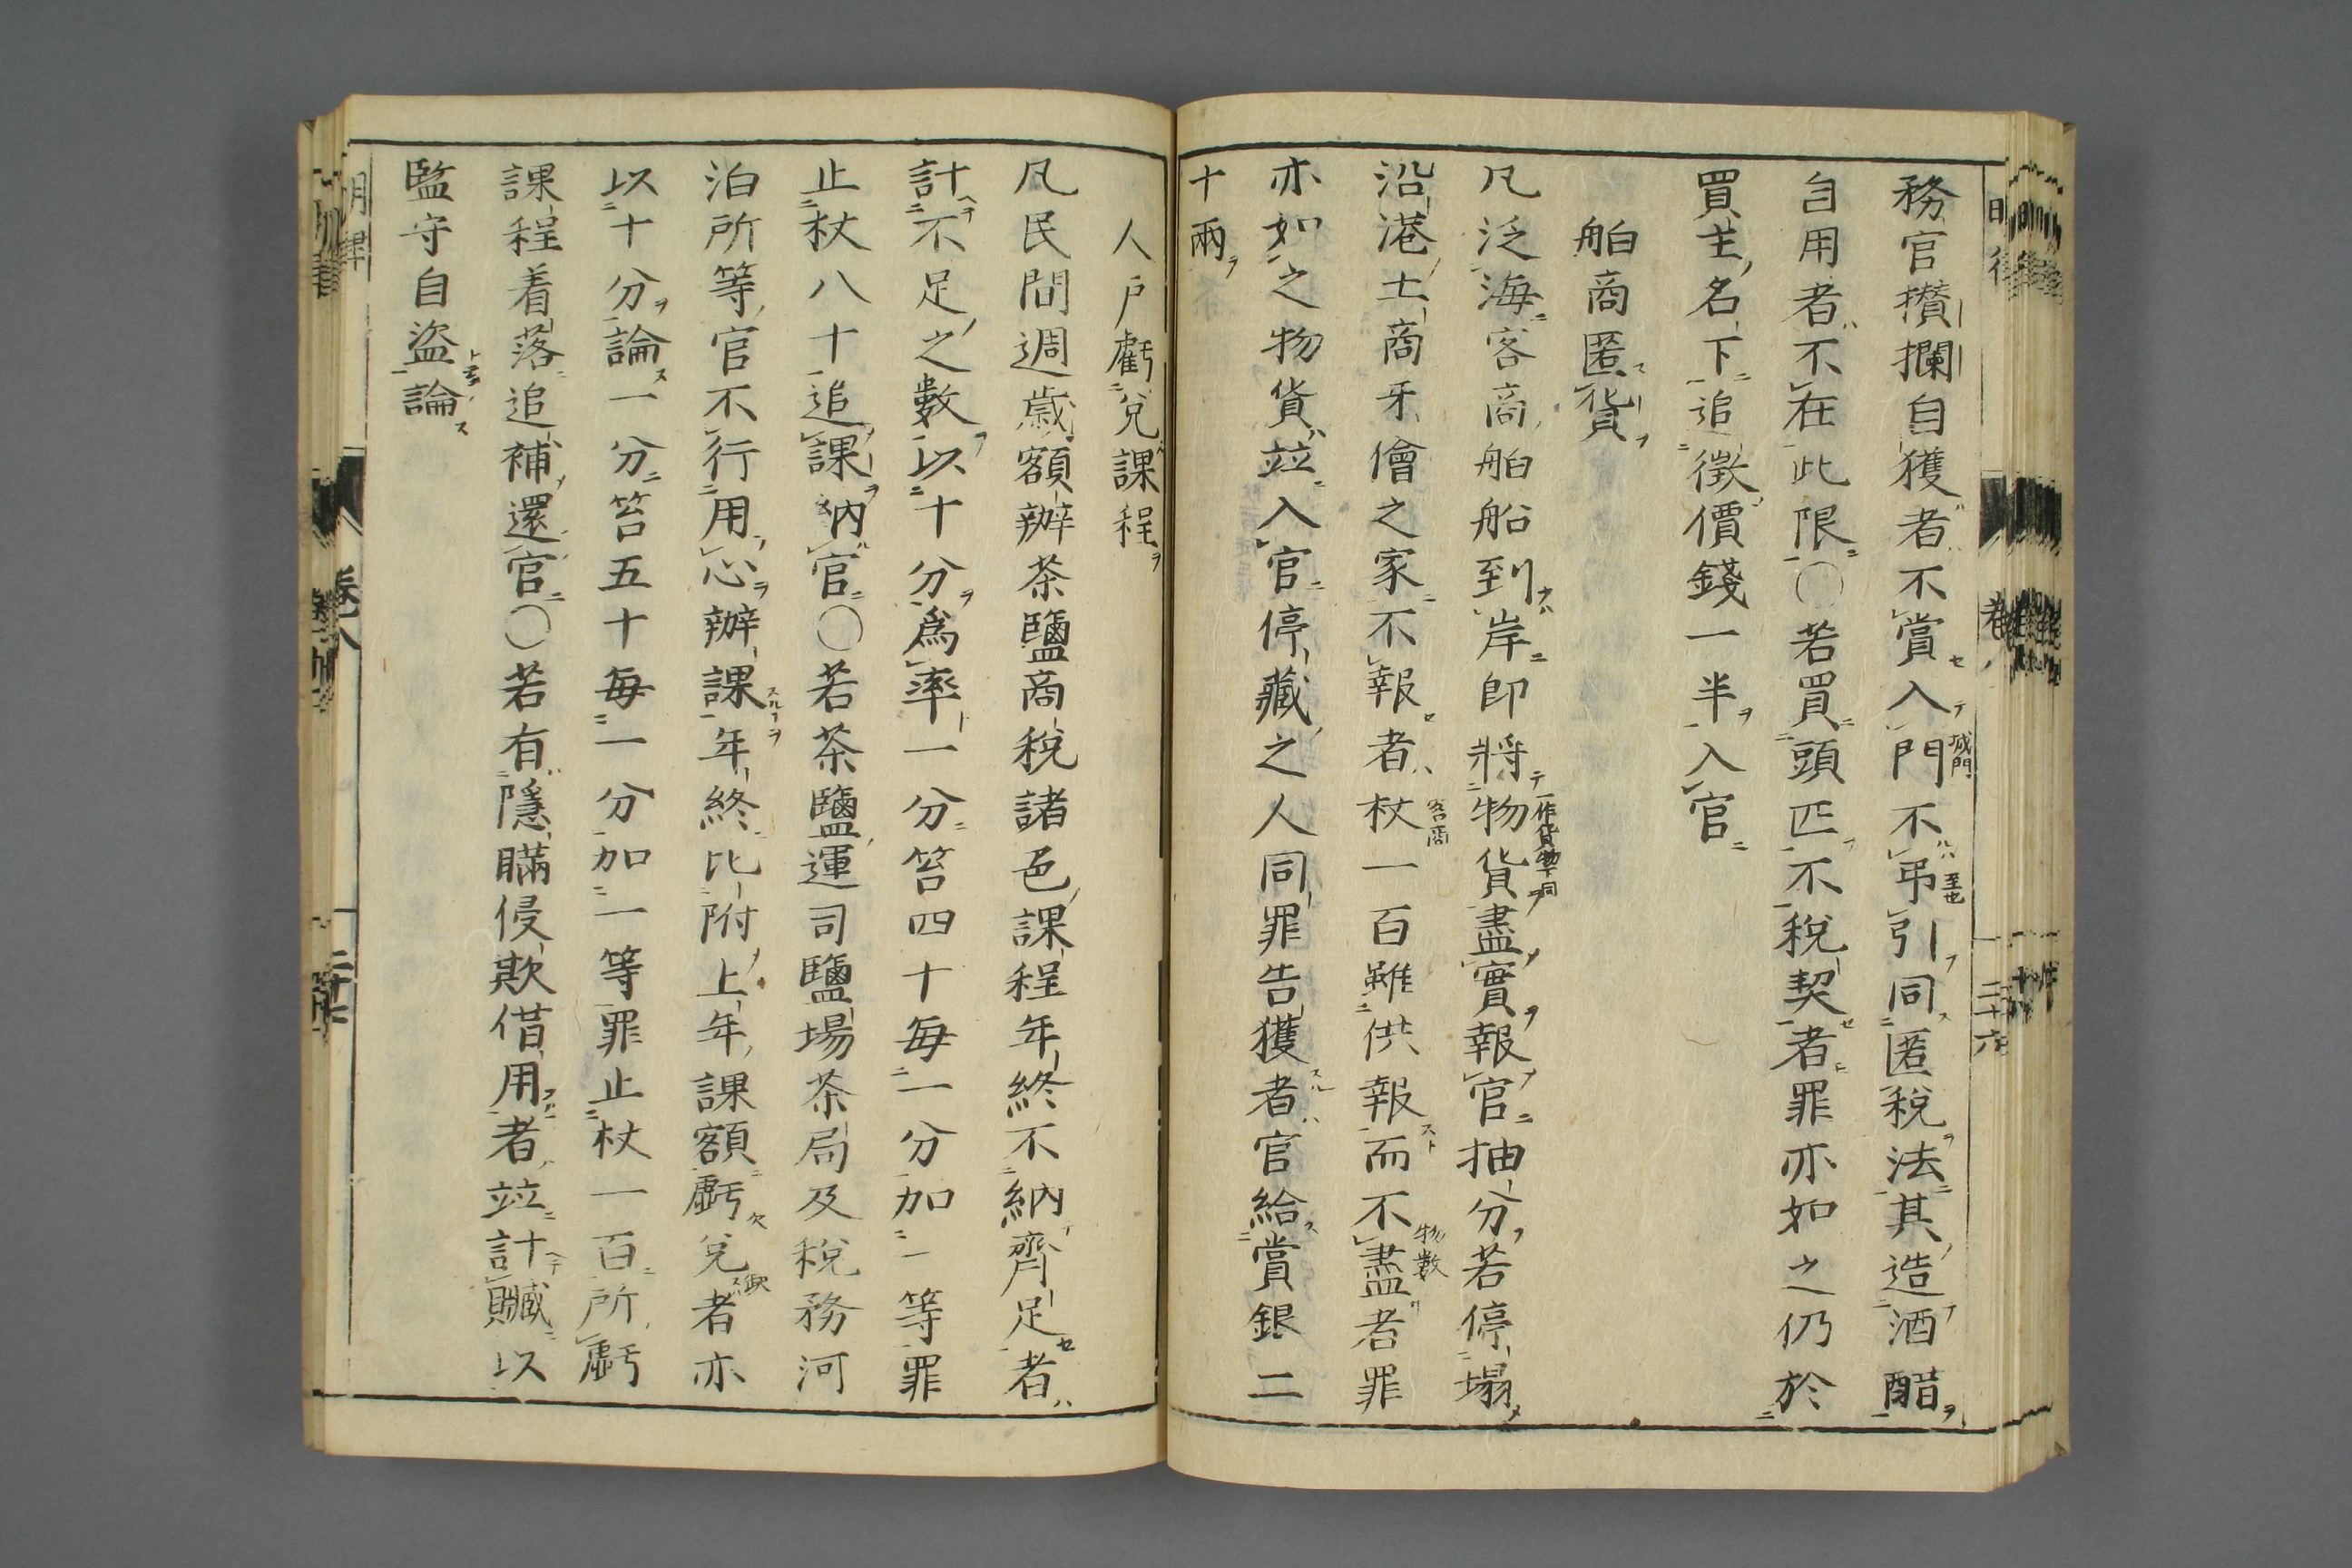 務官攅攔自獲者不賞入門不吊引同匿税法其造酒醋
城門
至也
自用者不在此限○若買頭匹不税契者罪亦如之仍於
買主名下追徴價錢一半入官
舶商匿貨
凡泛海客商舶船到岸即將物貨盡實報官抽分若停塌
一作貨物下同
沿港土商牙儈之家不報者杖一百雖供報而不盡者罪
客商
物數
亦如之物貨並入官停藏之人同罪告獲者官給賞銀二
十兩
人戶虧兌課程
凡民間週歲額辦茶鹽商税諸色課程年終不納齊足者
計不足之數以十分爲率一分笞四十每一分加一等罪
止杖八十追課納官○若茶鹽運司鹽場茶局及税務河
泊所等官不行用心辦課年終比附上年課額虧兌者亦
欠
缺
以十分論一分笞五十每一分加一等罪止杖一百所虧
課程着落追補還官○若有隱瞞侵欺借用者並計贓以
監守自盜論
明律
卷八
二十七